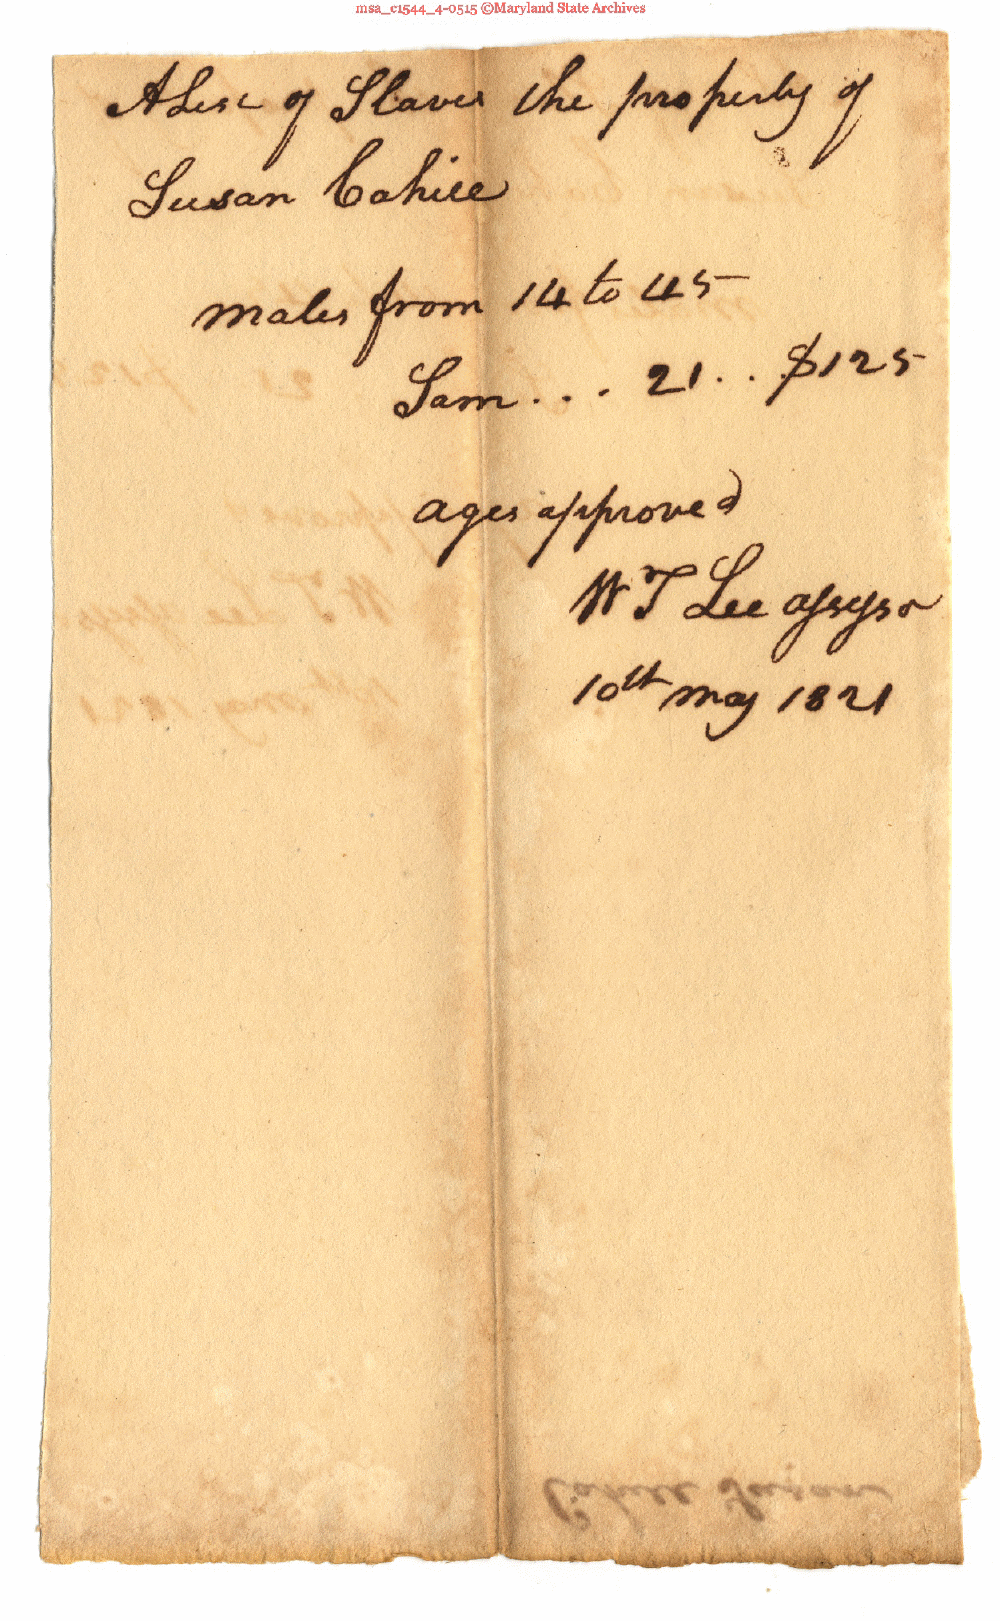 msa_c1544_4-0515 ©Maryland State Archives
A List of Slaves the property of
Susan Cahill
males from 14 to 45
Sam . . . 21 . . $125
ages approved
W T Lee assessor
10th may 1821
Cahill Susan